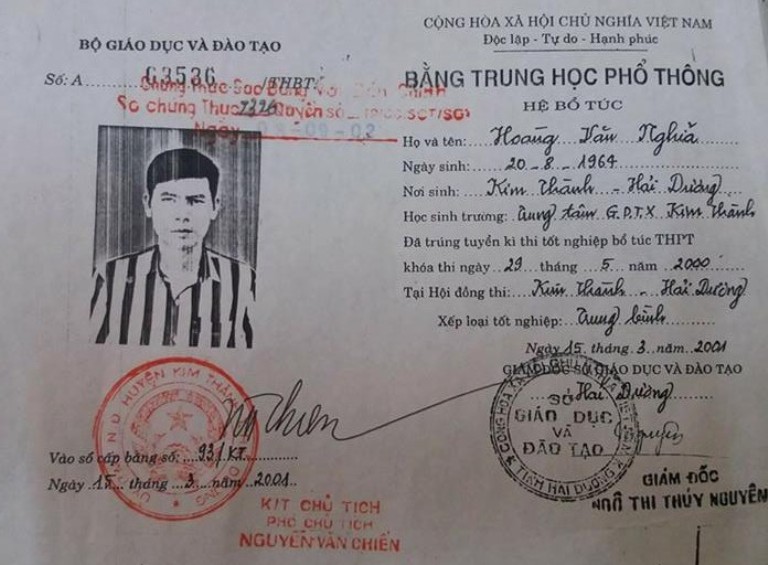 BỘ GIÁO DỤC VÀ ĐÀO TẠO
Số: A 63536 /THBT
Chứng Thực Sao Đúng Với Bản Chính
Số chứng Thực 7326 Quyển số
Ngày 03-09-02
CỘNG HÒA XÃ HỘI CHỦ NGHĨA VIỆT NAM
Độc lập - Tự do - Hạnh phúc
BẰNG TRUNG HỌC PHỔ THÔNG
HỆ BỔ TÚC
Họ và tên: Hoàng Văn Nghĩa
Ngày sinh: 20-8-1964
Nơi sinh: Kim Thành - Hải Dương
Học sinh trường: Trung tâm G.D.T.X Kim Thành
Đã trúng tuyển kì thi tốt nghiệp bổ túc THPT
khóa thi ngày 29 tháng 5 năm 2000
Tại Hội đồng thi: Kim Thành - Hải Dương
Xếp loại tốt nghiệp: Trung bình
Ngày 15 tháng 3 năm 2001
GIÁM ĐỐC SỞ GIÁO DỤC VÀ ĐÀO TẠO
Hải Dương
CỘNG HÒA XÃ HỘI CHỦ NGHĨA VIỆT NAM
SỞ
GIÁO DỤC
VÀ
ĐÀO TẠO
TỈNH HẢI DƯƠNG
GIÁM ĐỐC
NGÔ THỊ THÚY NGUYÊN
HUYỆN KIM THÀNH
Vào sổ cấp bằng số: 93/KT
Ngày 15 tháng 3 năm 2001
K/T CHỦ TỊCH
PHÓ CHỦ TỊCH
NGUYỄN VĂN CHIẾN